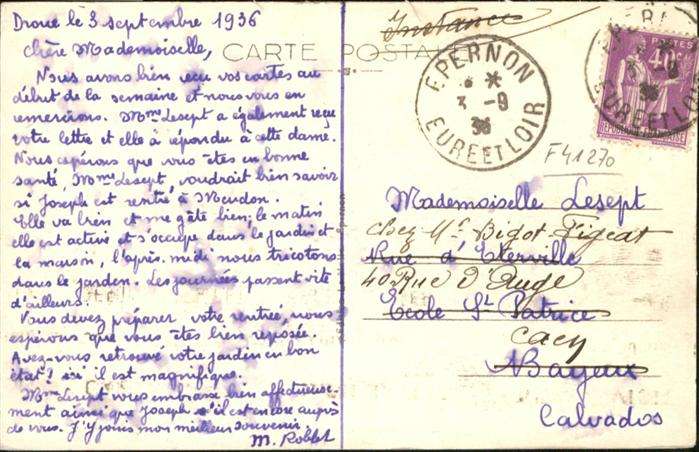 Droue le 3 septembre 1936
Chère Mademoiselle,
Nous avons bien reçu vos cartes au
début de la semaine et nous vous en
remercions. Mme Lesept a également reçu
votre lettre et elle à répondu à cette dame.
Nous espérons que vous êtes en bonne
santé, Mme Lesept, voudrait bien savoir
si Joseph est rentré à Meudon.
Elle va bien et me gâte bien; le matin
elle est active et s'occupe dans le jardin et
la maison, l'après-midi nous tricotons
dans le jardin. Les journées passent vite
d'ailleurs.
Vous devez préparer votre rentrée, nous
espérons que vous êtes bien reposée.
Avez-vous retrouvé votre jardin en bon
état? ici il est magnifique.
Mme Lesept vous embrasse bien affectueuse-
ment ainsi que Joseph s'il est encore auprès
de vous. J'y joins mon meilleur souvenir.
M. Roblet
CARTE POSTALE
Instance
EPERNON
3 -9
36
EURE ET LOIR
POSTES
40c
EURE ET LOIR
F41270
Mademoiselle Lesept
chez Mr Bigot Figeat
Rue d'Eterville
40 Rue d'Auge
Ecole St Patrice
Caen
Bayeux
Calvados